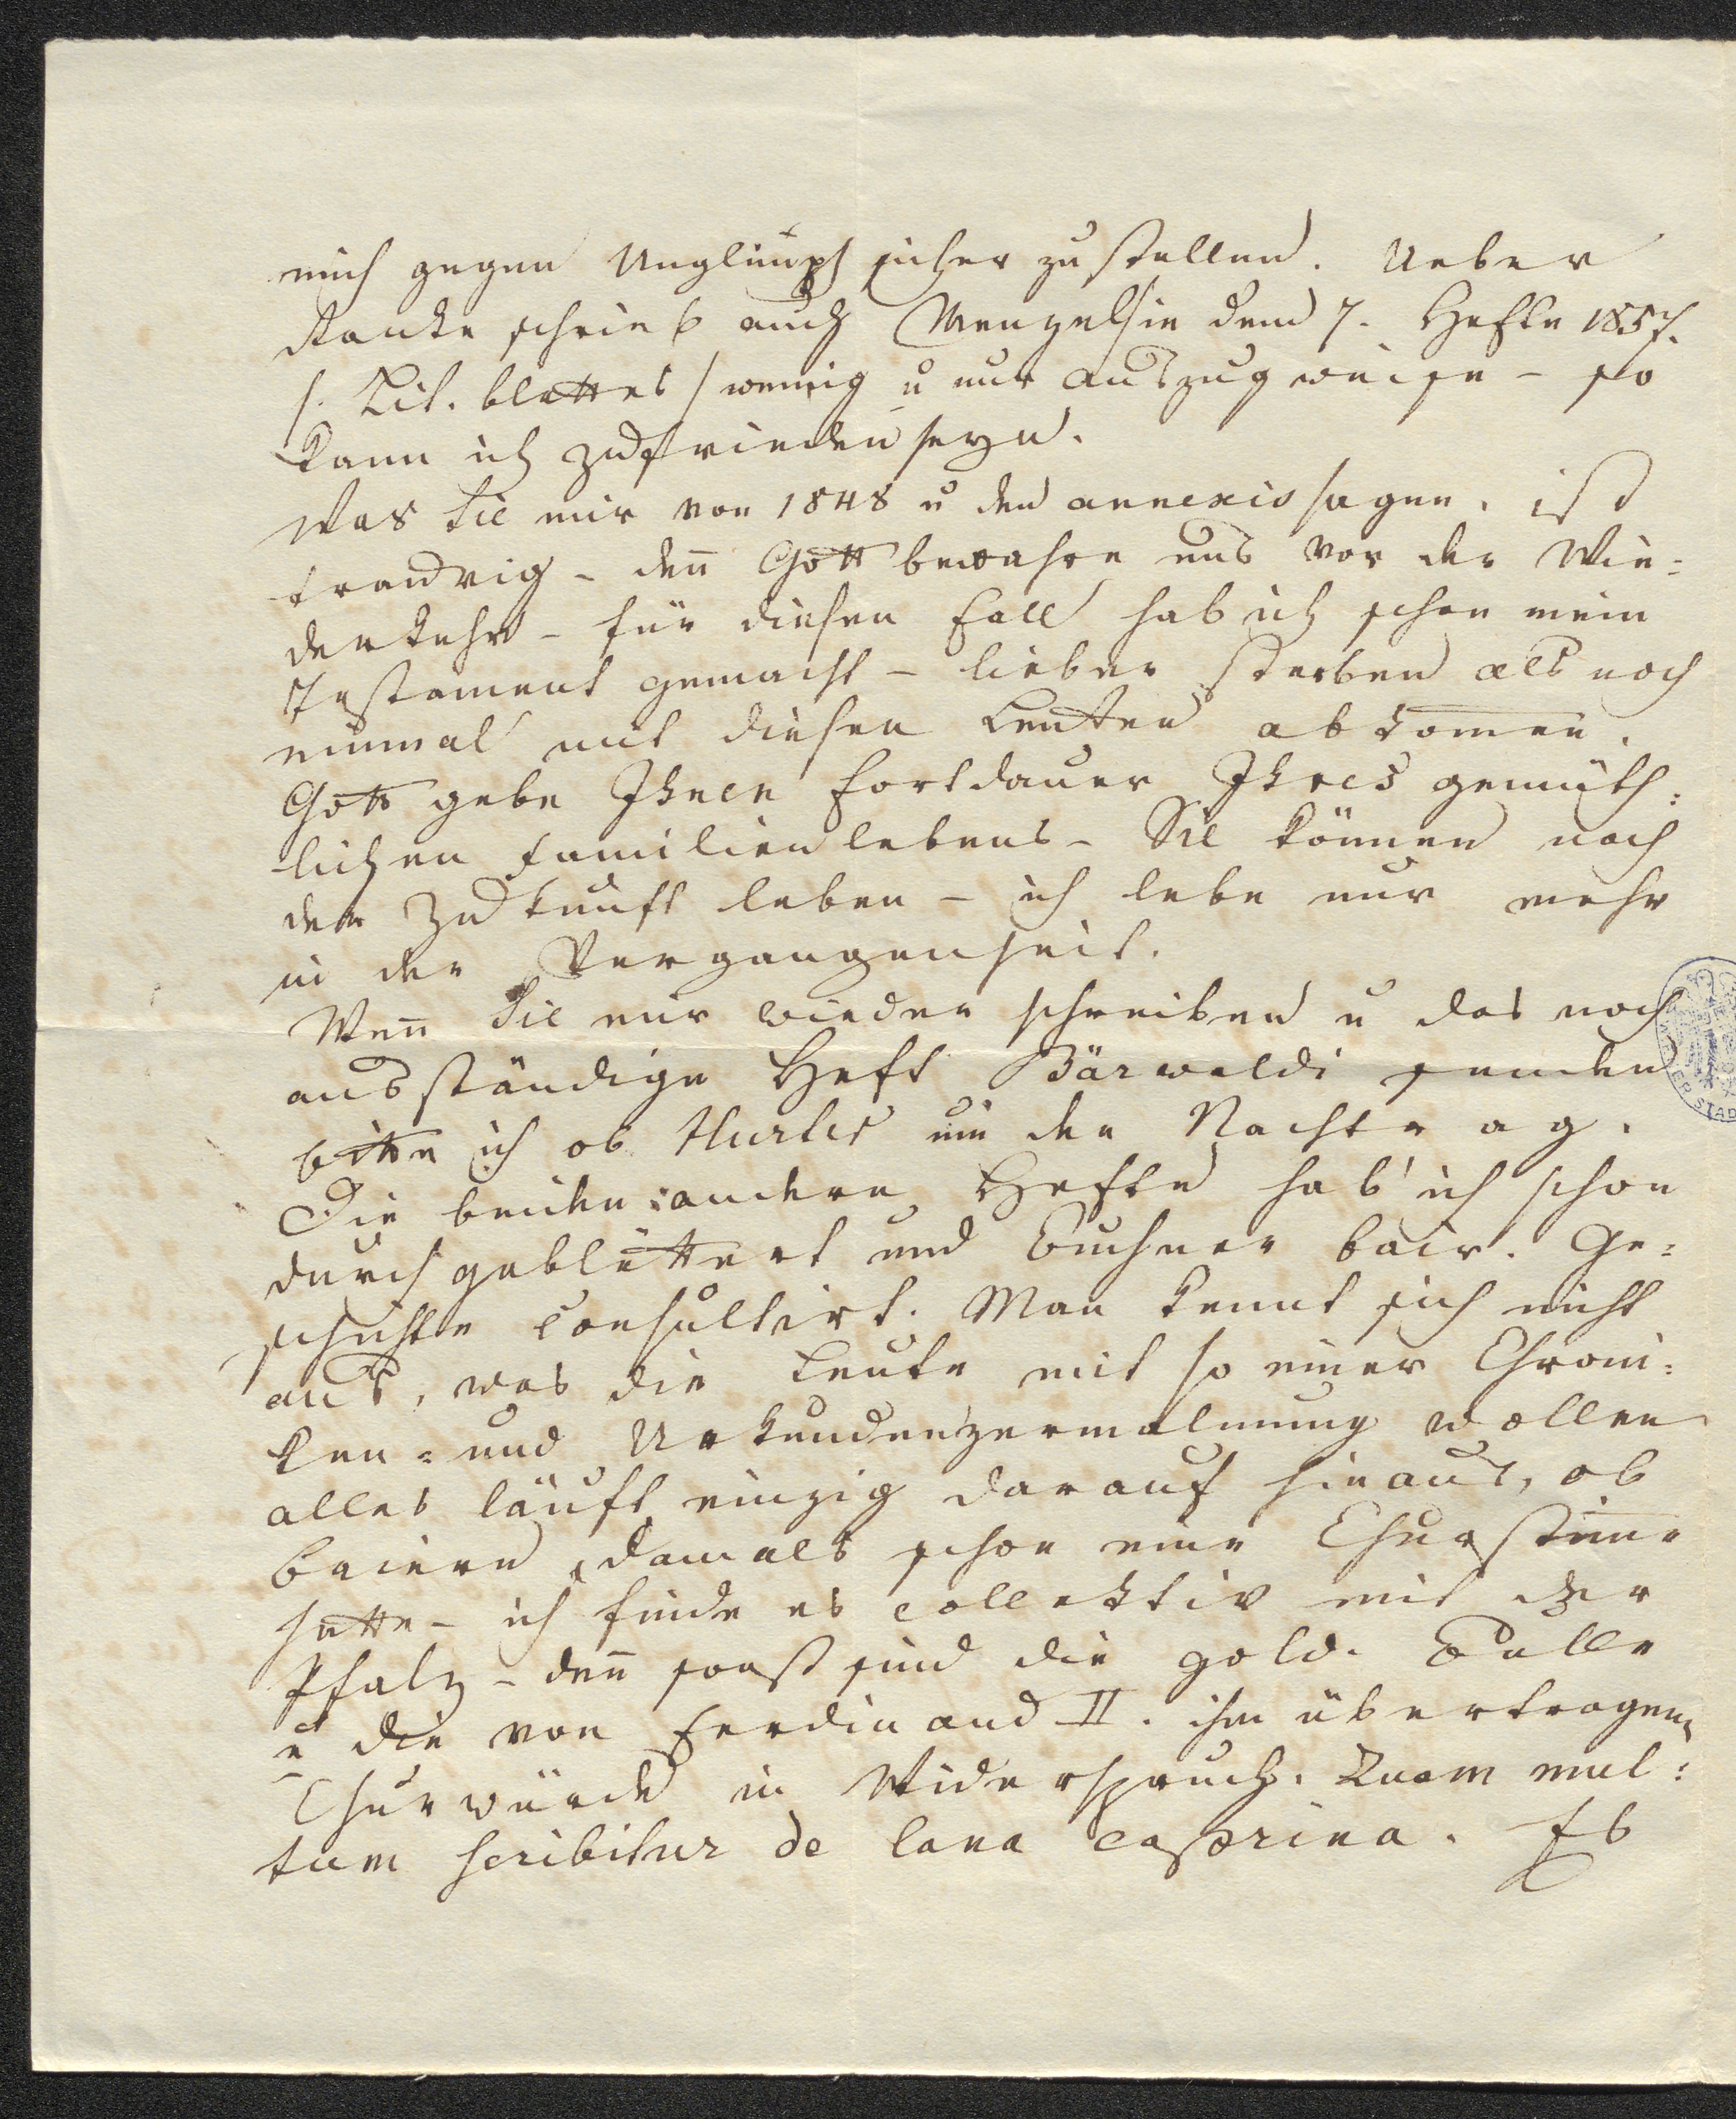 mich gegen Unglimpf sicher zu stellen. Ueber
Ranke schrieb auch Menzel /in dem 7. Hefte 1857.
s. Lit. blattes / wenig u nur auszugweise – so
kann ich zufrieden seyn.
Was Sie mir von 1848 u den annexis sagen, ist
traurig – deñ Gott bewahre uns vor der Wie=
derkehr – für diesen Fall hab ich schon mein
Testament gemacht – lieber sterben als noch
einmal mit diesen Leuten abkom̅en.
Gott gebe Ihnen Fortdauer Ihres gemüth=
lichen Familienlebens – Sie können noch
der Zukunft leben – ich lebe nur mehr
in der Vergangenheit.
Weñ Sie mir wieder schreiben u das noch
ausständige Heft Bärwaldi senden
bitte ich ob Hurter um den Nachtrag.
Die beiden andern Hefte hab' ich schon
durchgeblättert und Buchner bair. Ge=
schichte consultirt. Man kennt sich nicht
aus, was die Leute mit so einer Chroni=
ken= und Urkundenzermalmung wollen
alles läuft einzig darauf hinaus, ob
Baiern damals schon eine Churstim̅e
hatte – ich finde es collektiv mit der
Pfalz – deñ sonst sind die gold. Bulle
u die von Ferdinand II. ihm übertragene
Churwürde in Widerspruch. Quam mul=
tum scribitur de lana caprina. Es